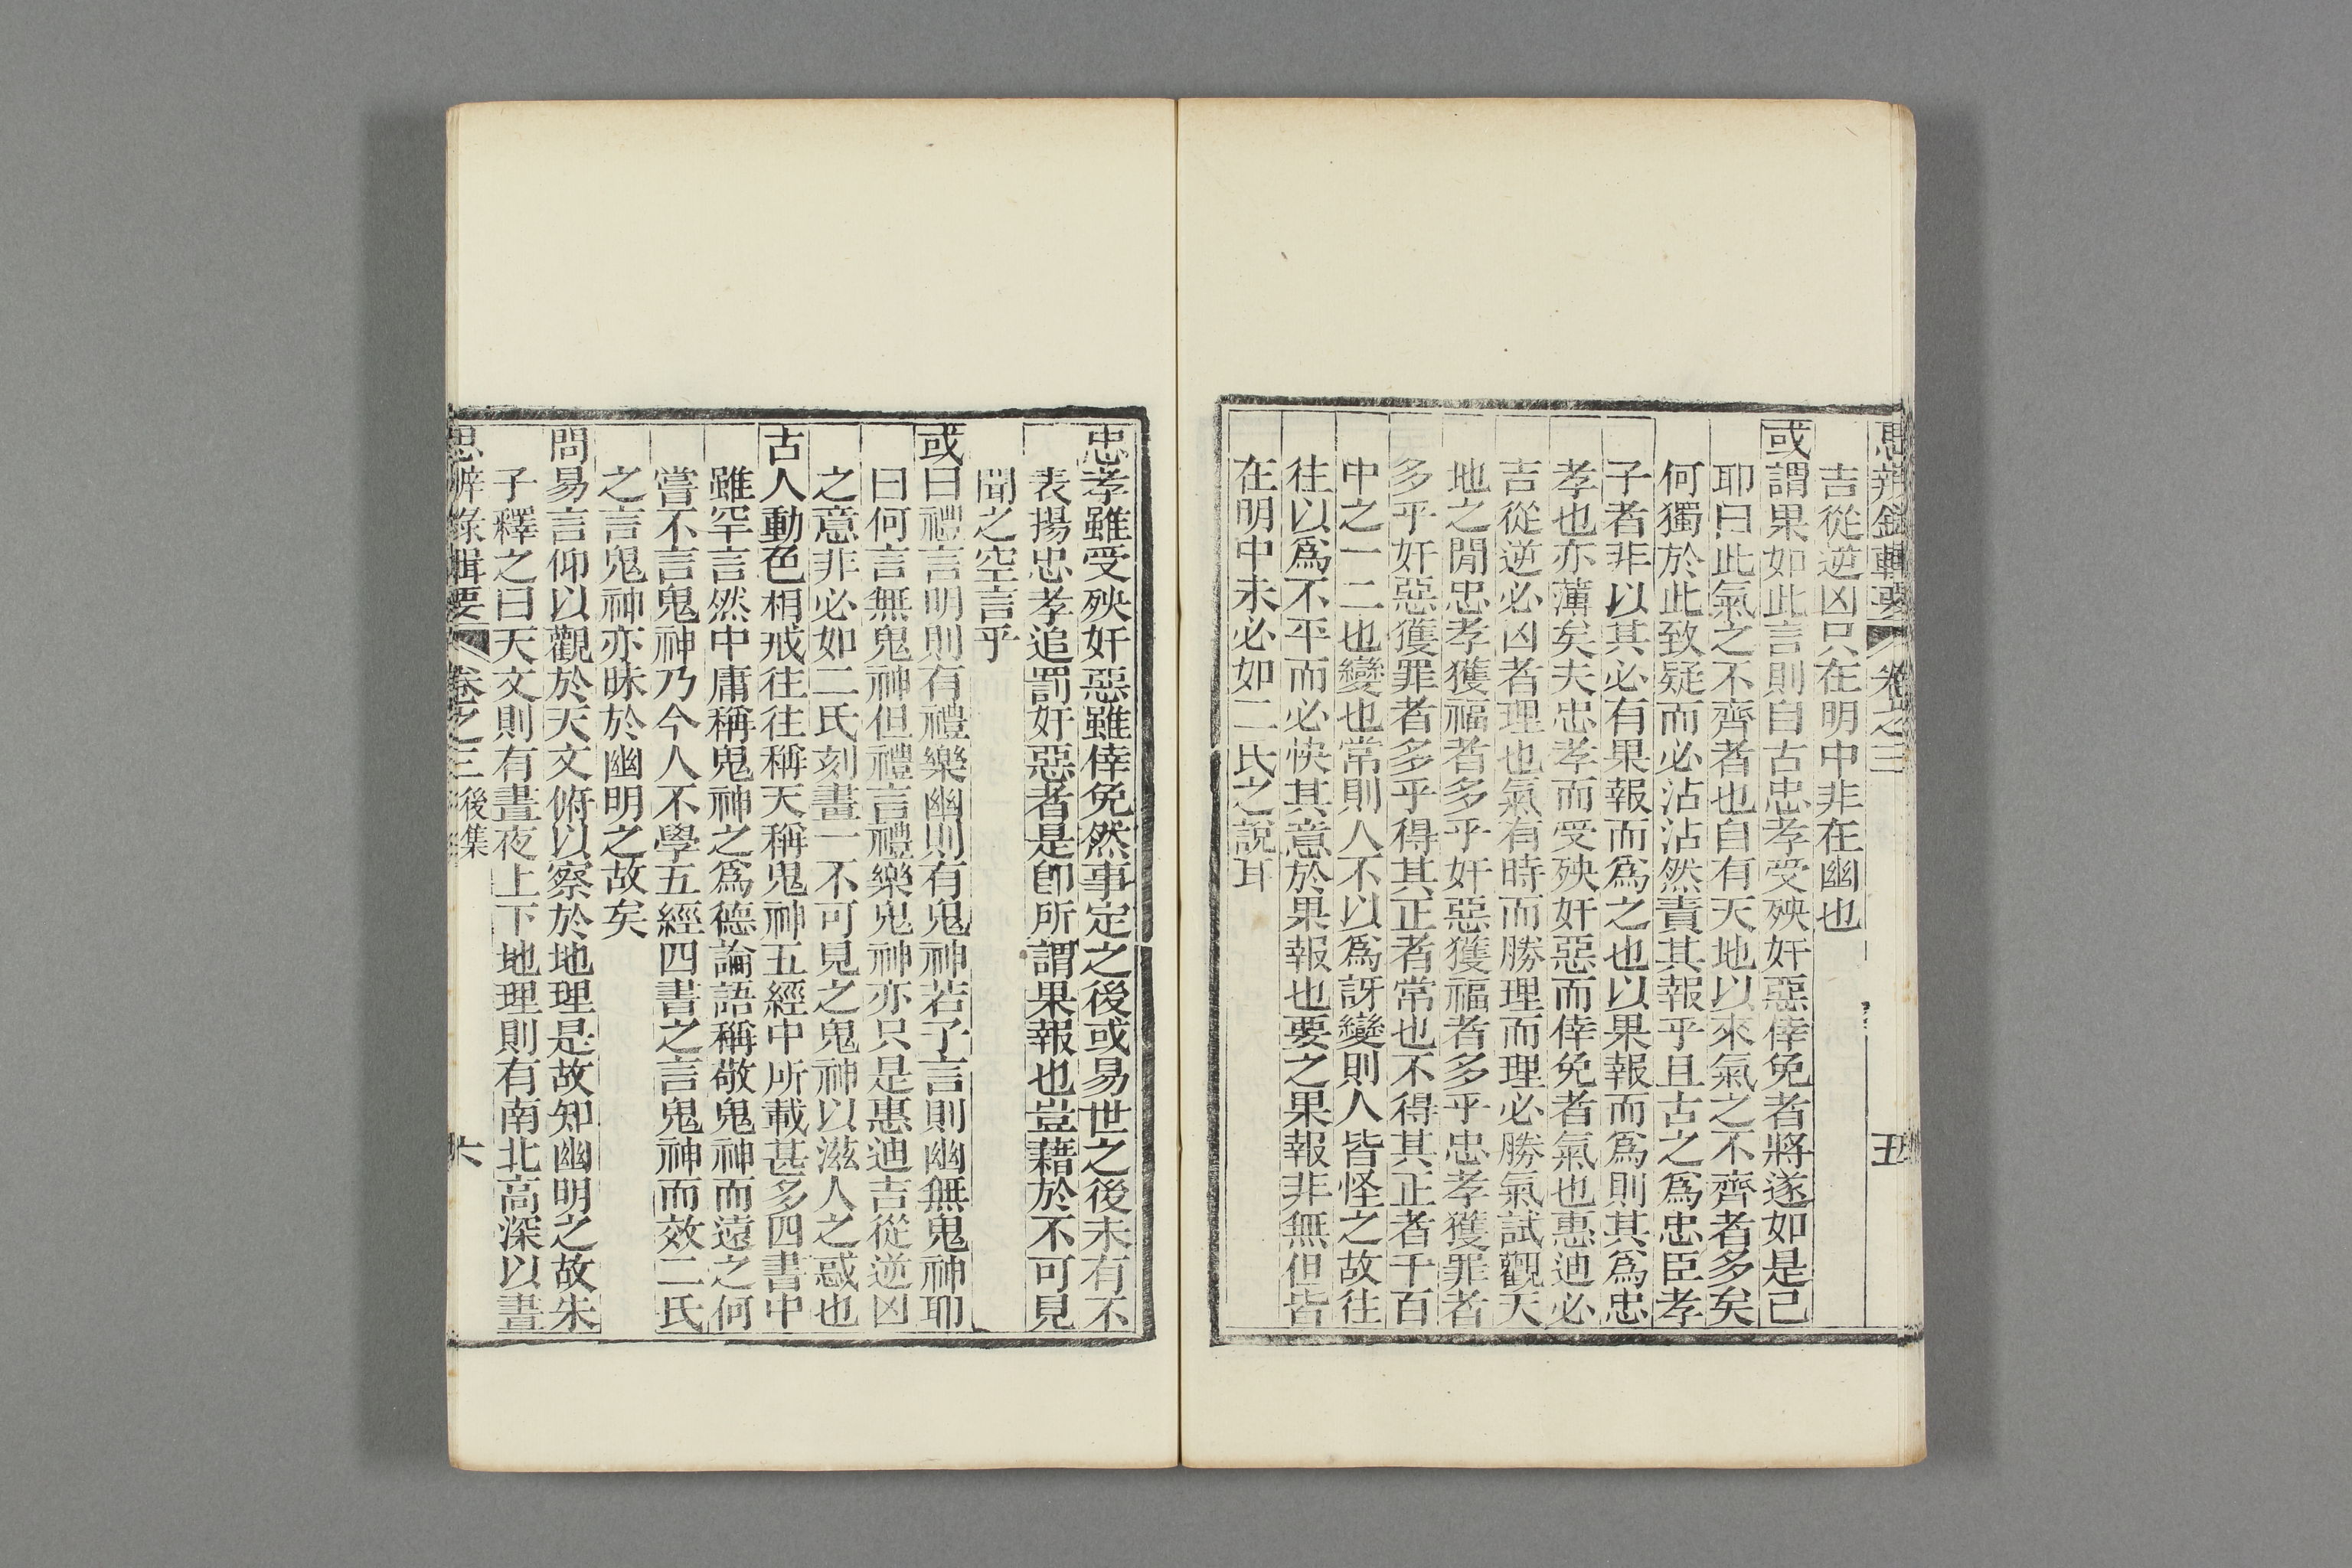 思辨錄輯要 卷之三 五
吉從逆凶只在明中非在幽也
或謂果如此言則自古忠孝受殃奸惡倖免者將遂如是已
耶曰此氣之不齊者也自有天地以來氣之不齊者多矣
何獨於此致疑而必沾沾然責其報乎且古之爲忠臣孝
子者非以其必有果報而爲之也以果報而爲則其爲忠
孝也亦薄矣夫忠孝而受殃奸惡而倖免者氣也惠迪必
吉從逆必凶者理也氣有時而勝理而理必勝氣試觀天
地之閒忠孝獲福者多乎奸惡獲福者多乎忠孝獲罪者
多乎奸惡獲罪者多乎得其正者常也不得其正者千百
中之一二也變也常則人不以爲訝變則人皆怪之故往
往以爲不平而必快其意於果報也要之果報非無但皆
在明中未必如二氏之說耳
忠孝雖受殃奸惡雖倖免然事定之後或易世之後未有不
表揚忠孝追罰奸惡者是卽所謂果報也豈藉於不可見
聞之空言乎
或曰禮言明則有禮樂幽則有鬼神若子言則幽無鬼神耶
曰何言無鬼神但禮言禮樂鬼神亦只是惠迪吉從逆凶
之意非必如二氏刻畫一不可見之鬼神以滋人之惑也
古人動色相戒往往稱天稱鬼神五經中所載甚多四書中
雖罕言然中庸稱鬼神之爲德論語稱敬鬼神而遠之何
嘗不言鬼神乃今人不學五經四書之言鬼神而效二氏
之言鬼神亦昧於幽明之故矣
問易言仰以觀於天文俯以察於地理是故知幽明之故朱
子釋之曰天文則有晝夜上下地理則有南北高深以晝
思辨錄輯要 卷之三 後集 六